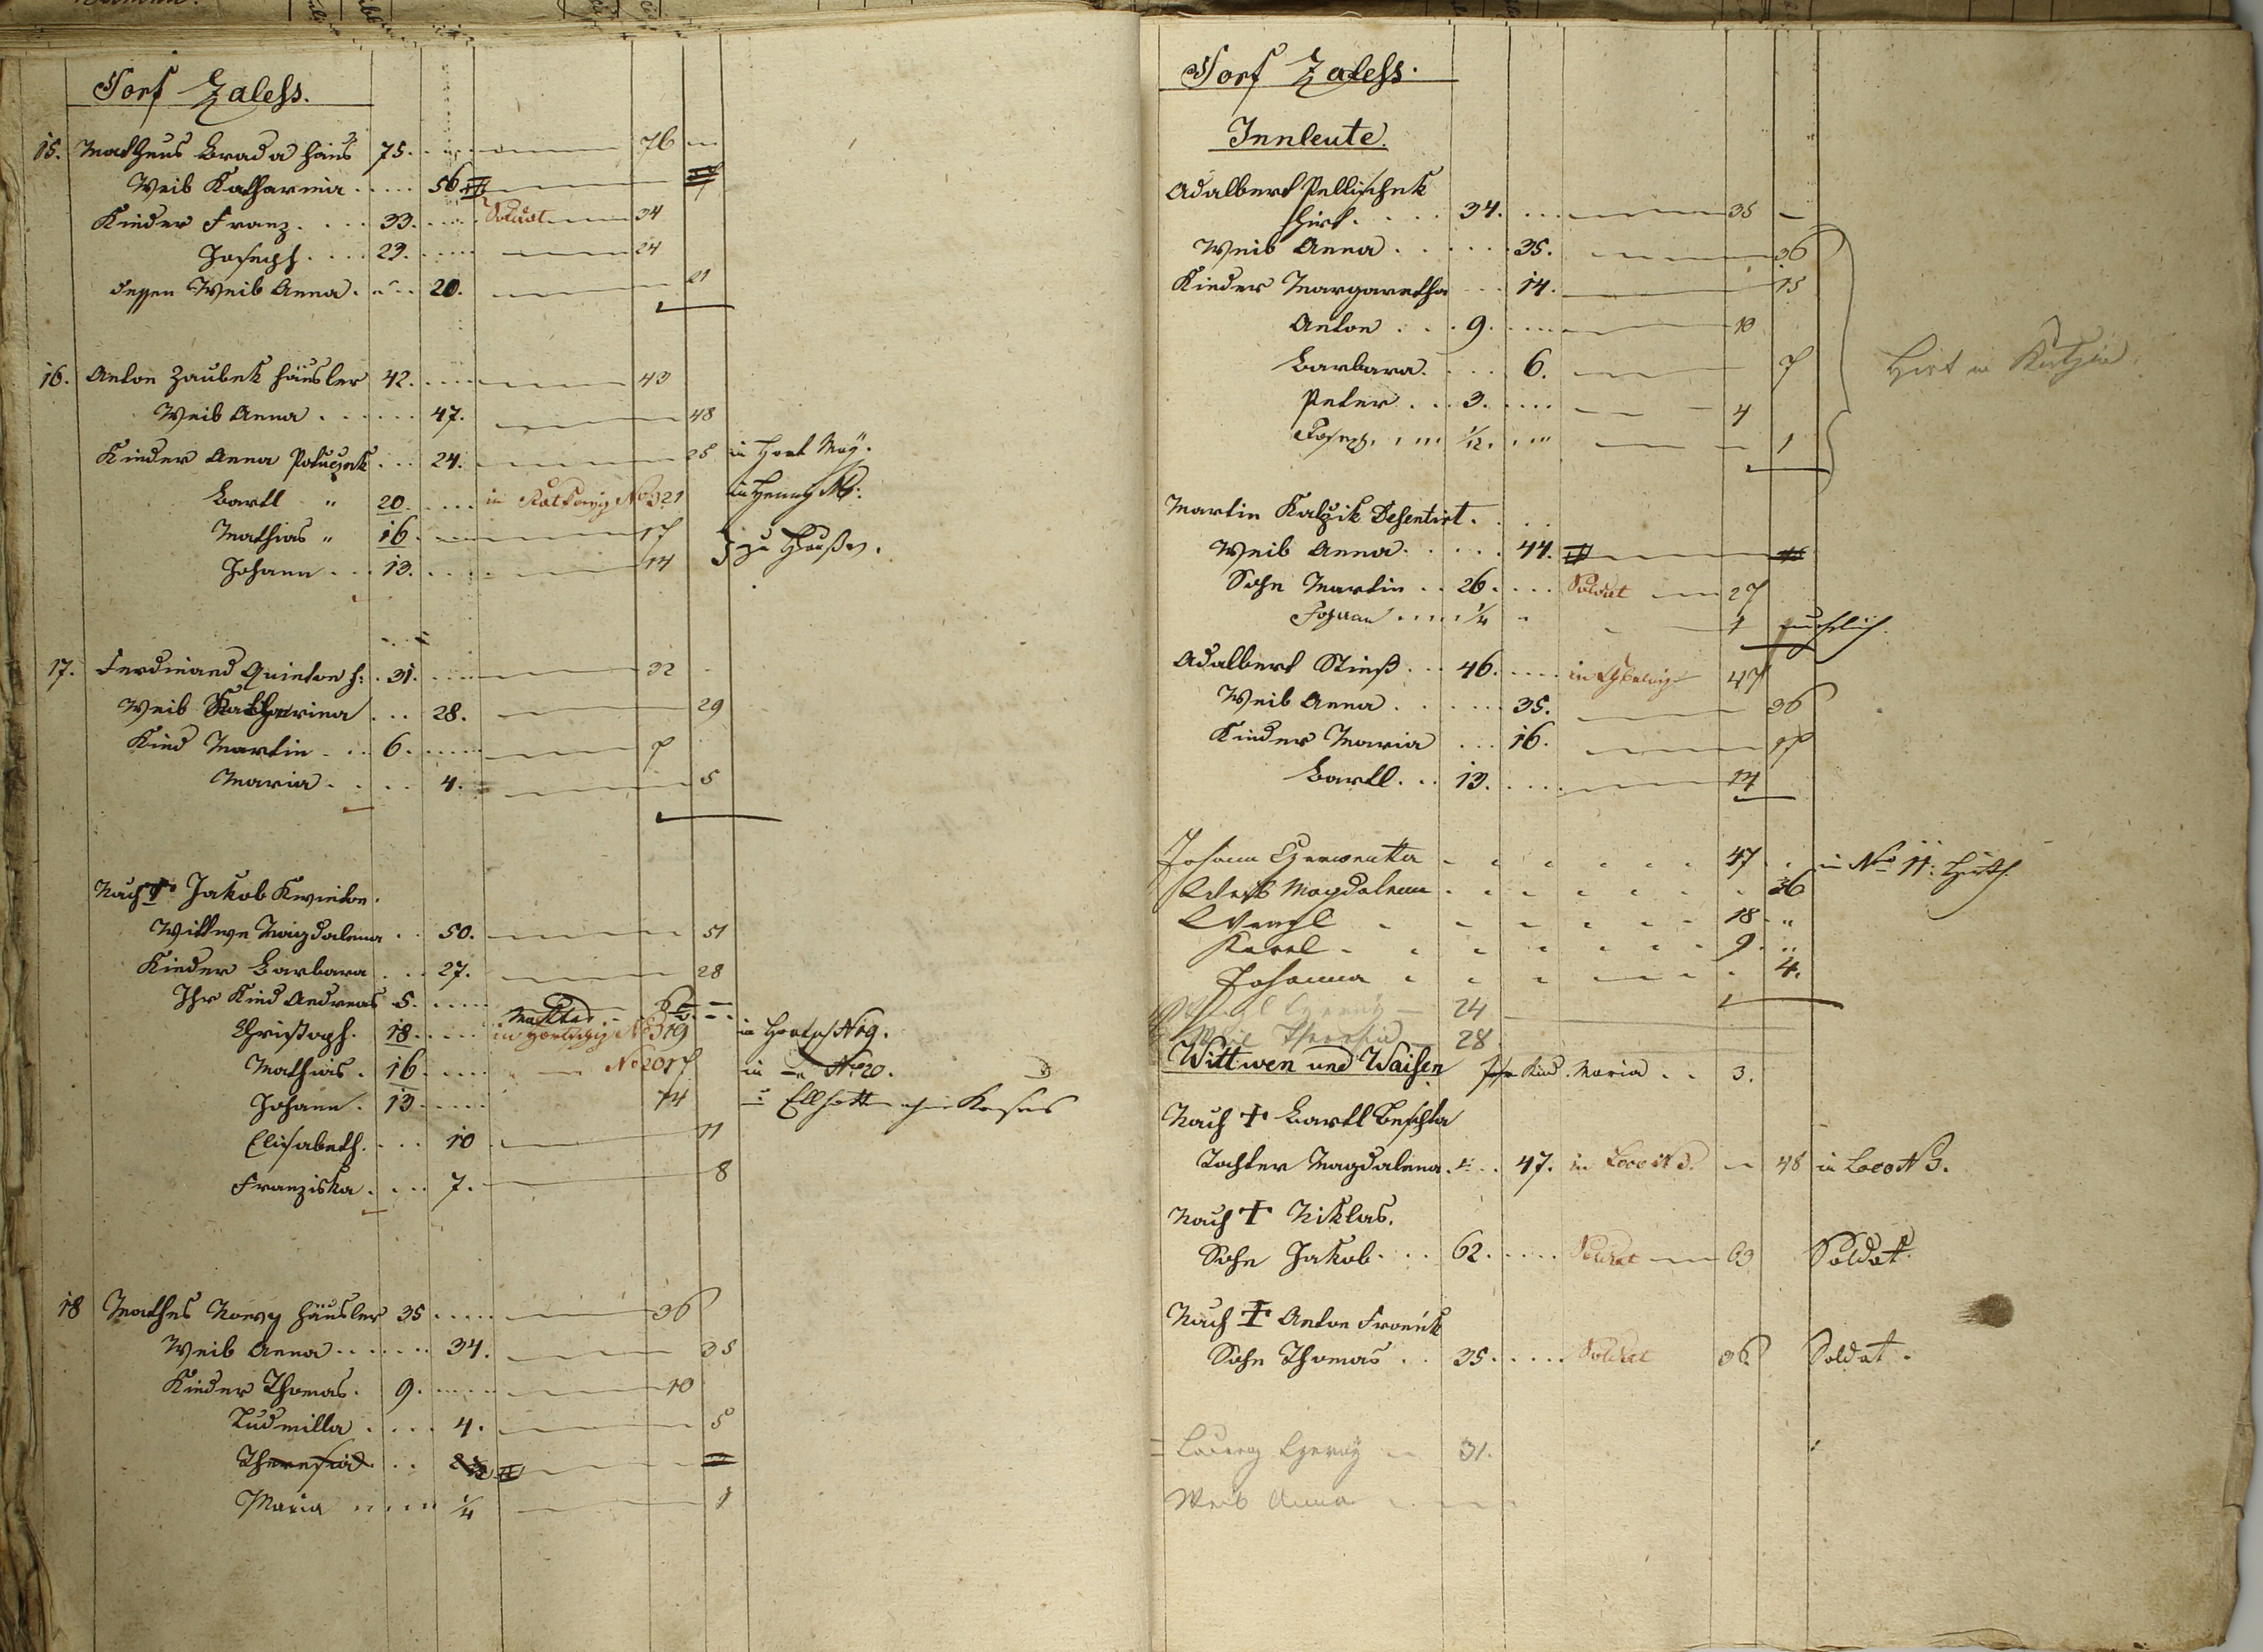 Dorf Zaless.
15. Matheus Brada Häus 75. 76
Weib Katharina 56
Kinder Franz 33. Soldat 34
Joseph 23. 24
dessen Weib Anna 20. 21
16. Anton Zaubek Häusler 42. 43
Weib Anna 47. 48
Kinder Anna Potuczek 24. 25 in
Bartl " 20. in No 21
Mathias " 16 17 zu Hause.
Johann 13. 14
17. Ferdinand Quinton H: 31. 32
Weib Katharina 28. 29
Kind Martin 6. 7
Maria 4. 5
Nach † Jakob Kwinton.
Wittwe Magdalena 50. 51
Kinder Barbara 27. 28
Ihr Kind Andreas 5. 6
Christoph. 18. in 19 in No 9.
Mathias. 16. No 20 17 in No 20.
Johann. 13 14
Elisabeth. 10 11
Franziska 7. 8
18 Mathes Nowy Häusler 35 36
Weib Anna 34. 35
Kinder Thomas. 9. 10
Ludmilla 4. 5
Theresia
Maria 1/4 1
Dorf Zaless.
Innleute.
Adalbert Pellischek
Hirt. 34. 35
Weib Anna 35. 36
Kinder Margaretha 14. 15
Anton 9. 10
Barbara. 6. 7
Peter 3. 4
Joseph. 1/12. 1
Hirt in
Martin Kalzik Desentirt.
Weib Anna 44.
Sohn Martin 26. Soldat 27
Johann 1/4 1
Adalbert Stieß 46. in 47
Weib Anna 35. 36
Kinder Maria 16. 17
Bartl. 13. 14
Johann 47 in No 11.
Weib Magdalena 36
Wenzl 18 "
Karel 9. "
Johanna 4.
24
Weib Theresia 28
Wittwen und Waisen Ihr Kind Maria 3.
Nach † Bartl Beschta
Tochter Magdalena 47. in Loco N 3. 48 in Loco N 3.
Nach † Niklas.
Sohn Jakob 62. Soldat 63 Soldat.
Nach † Anton Froněk
Sohn Thomas 35. Soldat 36 Soldat.
31.
Weib Anna